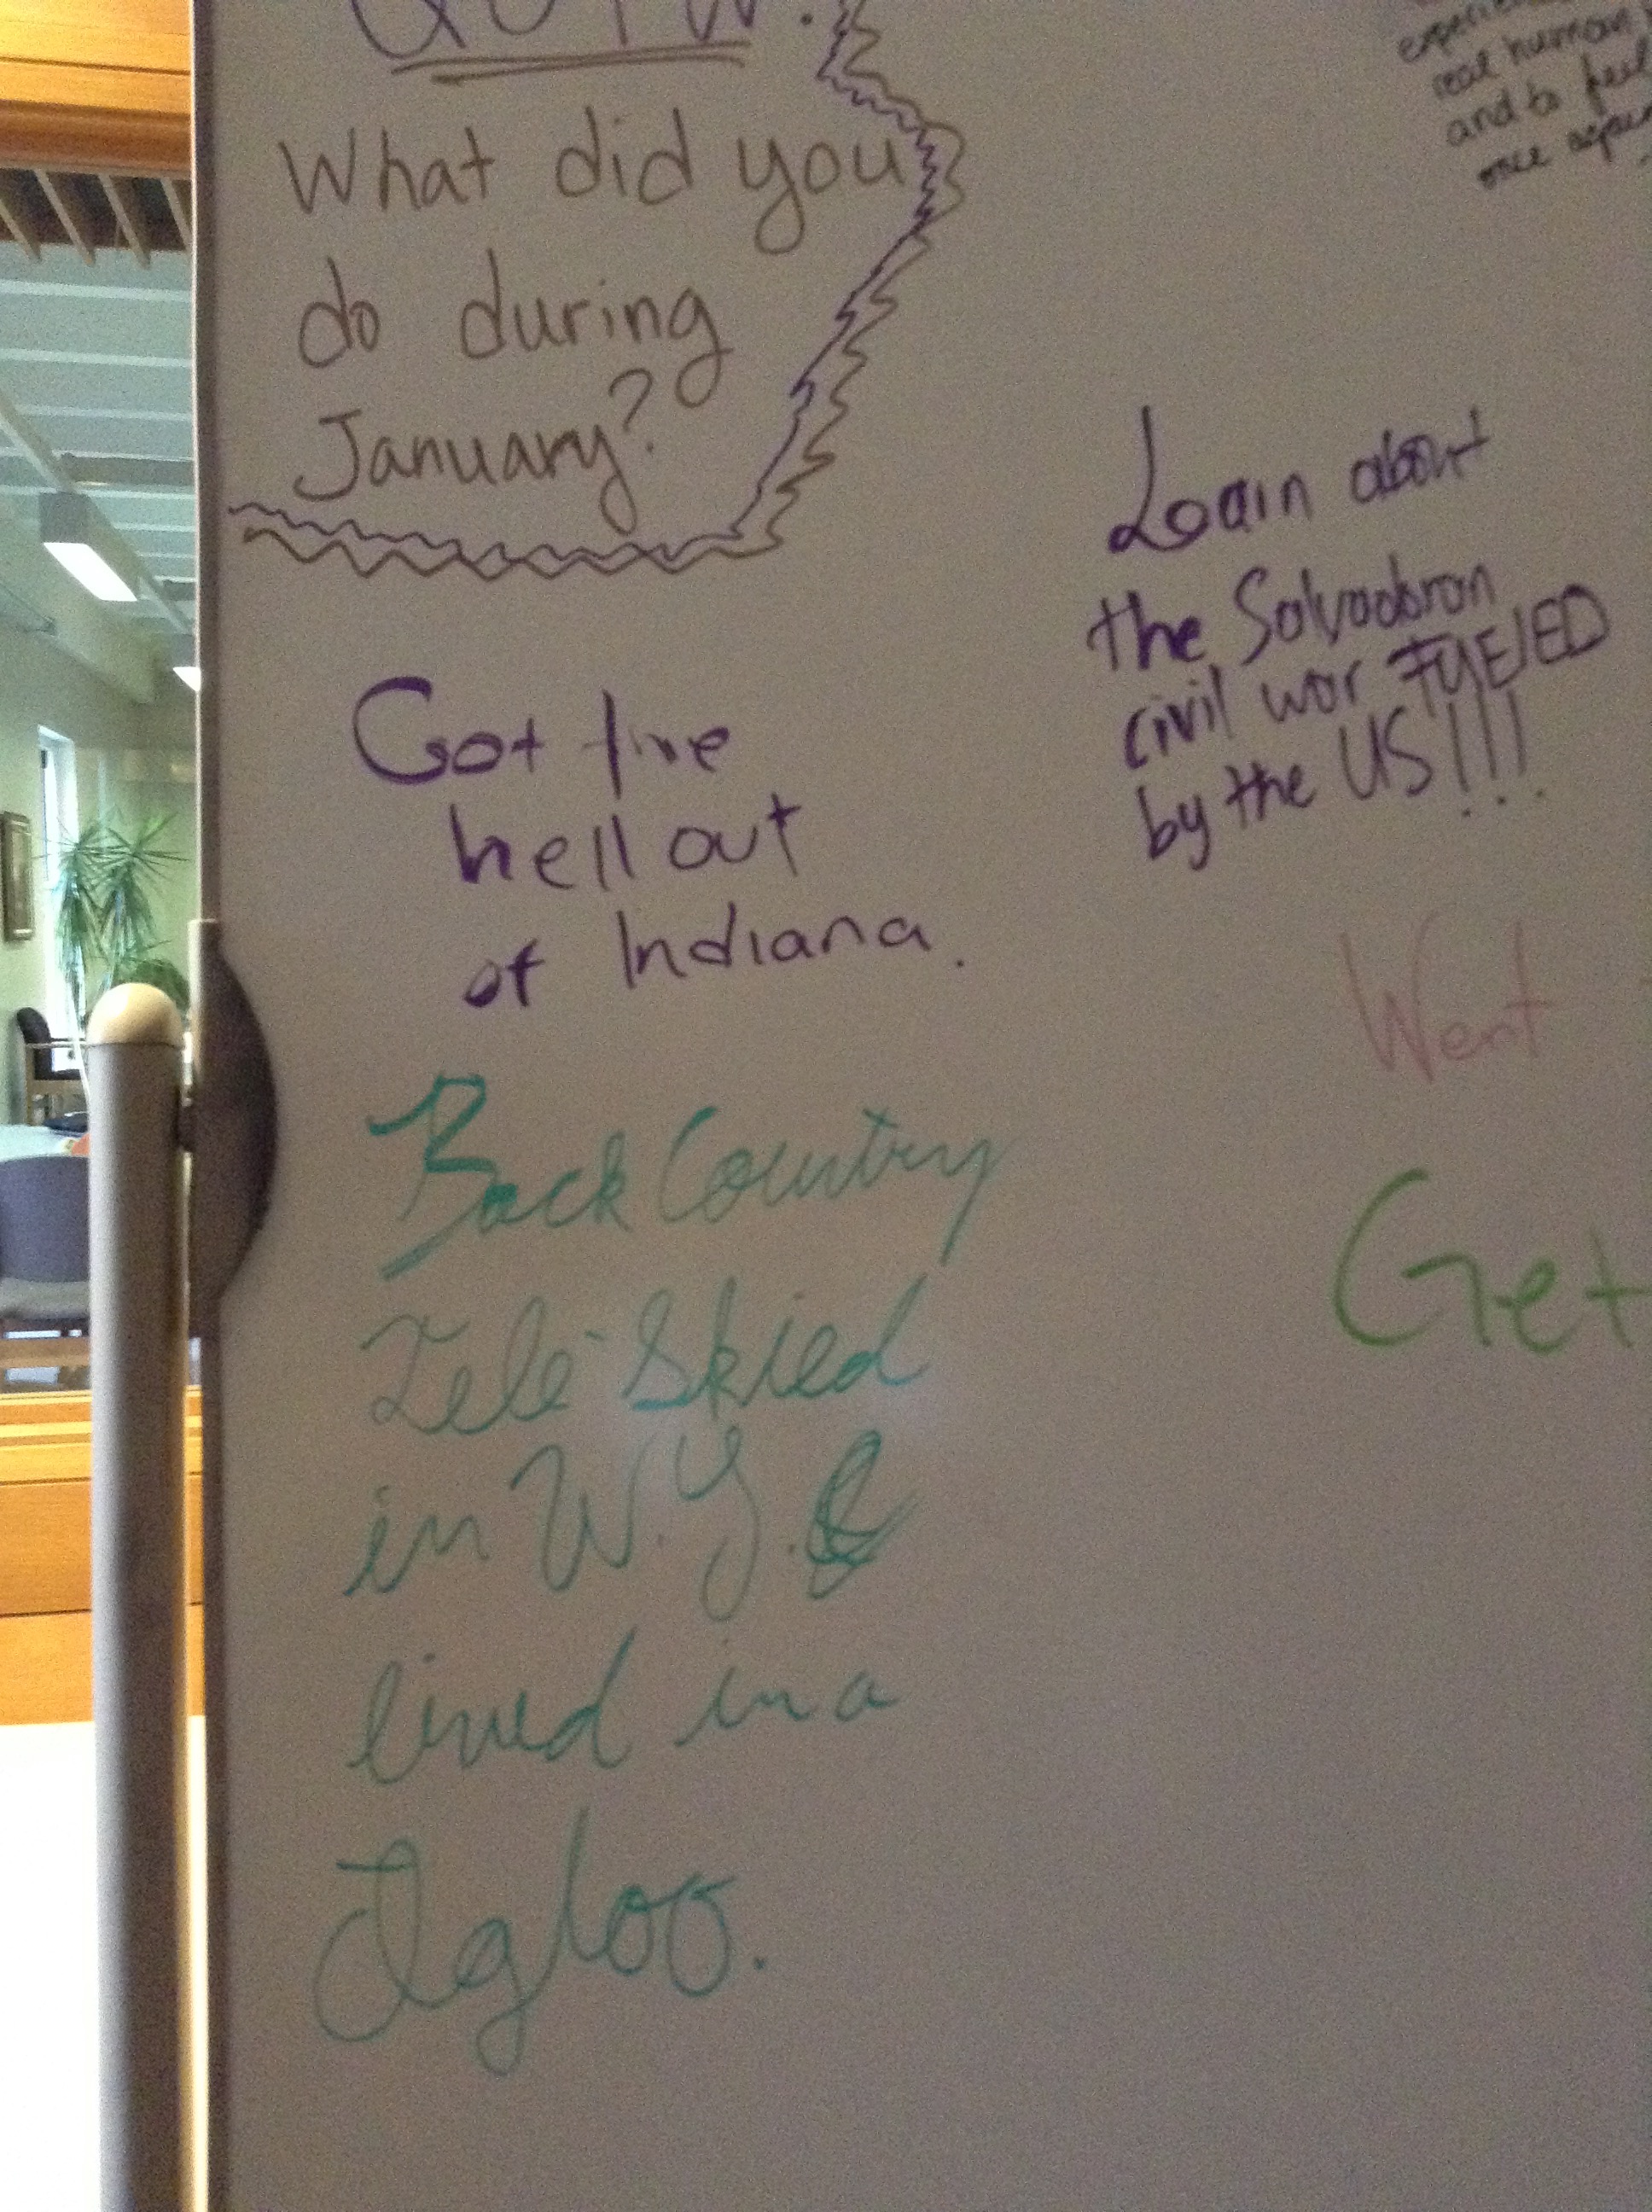 QOTW:
What did you
do during
January?
real human
and to feel
once again
Learn about
the Salvadoran
civil war FUELED
by the US!!!
Got the
hell out
of Indiana.
Went
Get
Back Country
Tele-Skied
in W.Y. &
lived in a
Igloo.